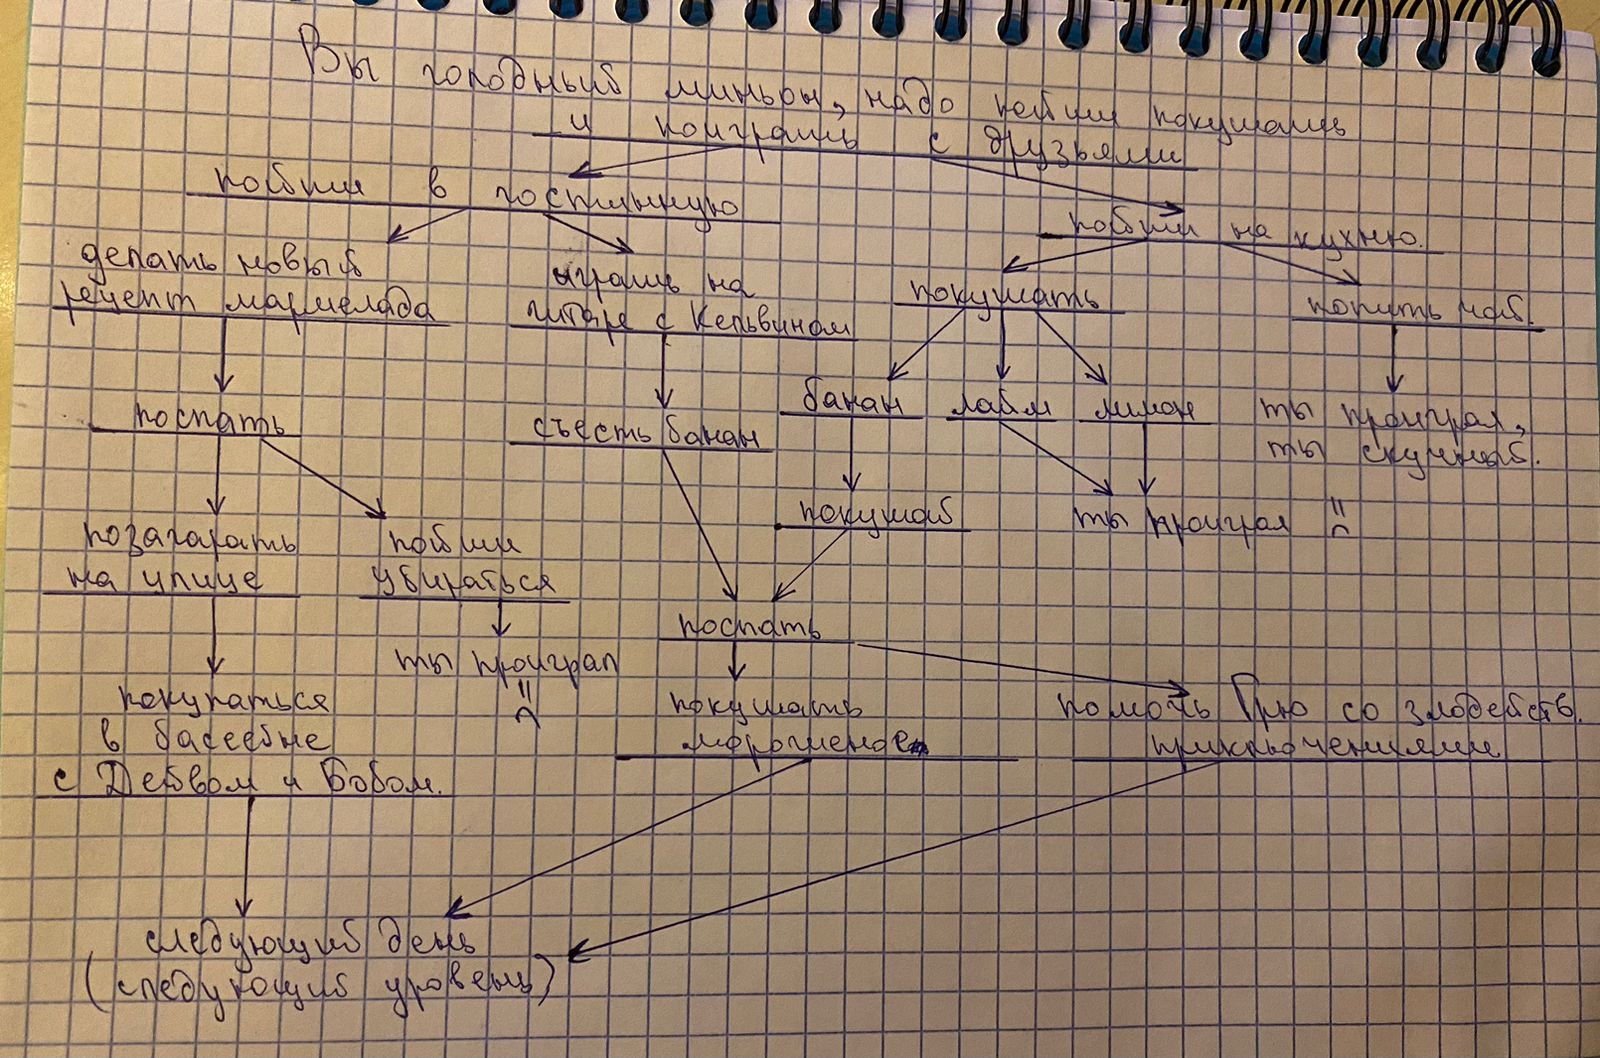 Вы голодный миньон, надо пойти покушать
и поиграть с друзьями
пойти в гостинную
пойти на кухню.
делать новый
рецепт мармелада
играть на
гитаре с Кельвином
покушать
попить чай.
поспать
съесть банан
банан лайм лимон
ты проиграл,
ты скучный.
позагарать
на улице
пойти
убираться
покушай
ты проиграл
поспать
ты проиграл
покупаться
в бассейне
с Дейвом и Бобом.
покушать
мороженое
помочь Грю со злодейств.
приключениями
следующий день
(следующий уровень)